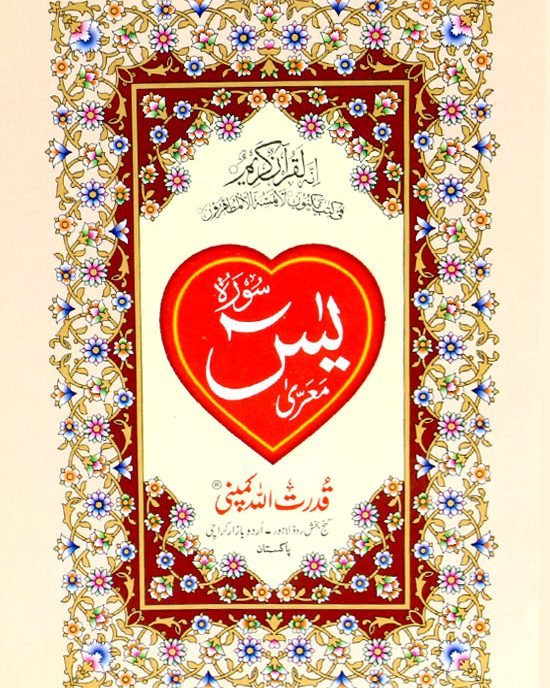 اِنَّهٗ لَقُرْاٰنٌ كَرِیْمٌ
فِیْ كِتٰبٍ مَّكْنُوْنٍ لَّا یَمَسُّهٗۤ اِلَّا الْمُطَهَّرُوْنَ
سورہ
یٰسٓ
معرّیٰ
قدرت اللہ کمپنی ®
گنج بخش روڈ لاہور - اُردو بازار کراچی
پاکستان